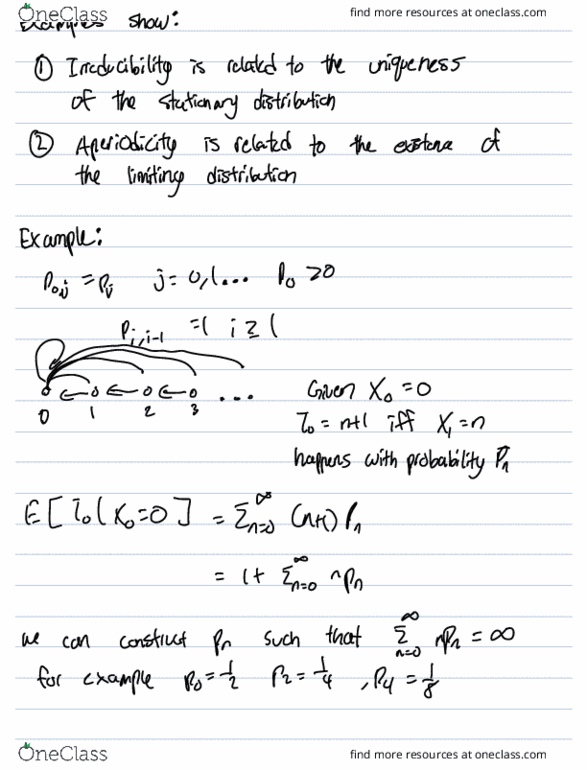 OneClass
find more resources at oneclass.com
Examples show:
① Irreducibility is related to the uniqueness
of the stationary distribution
② Aperiodicity is related to the existence of
the limiting distribution
Example:
P₀,ⱼ = Pⱼ j = 0,1... P₀ > 0
Pᵢ,ᵢ₋₁ = 1 i ≥ 1
0 1 2 3 ...
Given X₀ = 0
T₀ = n+1 iff X₁ = n
happens with probability Pₙ
E[T₀|X₀=0] = Σₙ₌₀^∞ (n+1) Pₙ
= 1 + Σₙ₌₀^∞ nPₙ
we can construct Pₙ such that Σₙ₌₀^∞ nPₙ = ∞
for example P₀ = 1/2 P₂ = 1/4 , P₄ = 1/8
OneClass
find more resources at oneclass.com